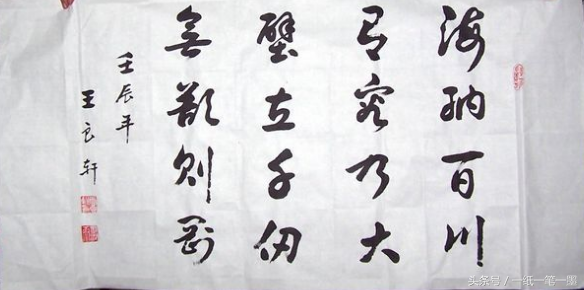 海纳百川
有容乃大
壁立千仞
無欲则刚
壬辰年
王良轩
头条号／一纸一笔一